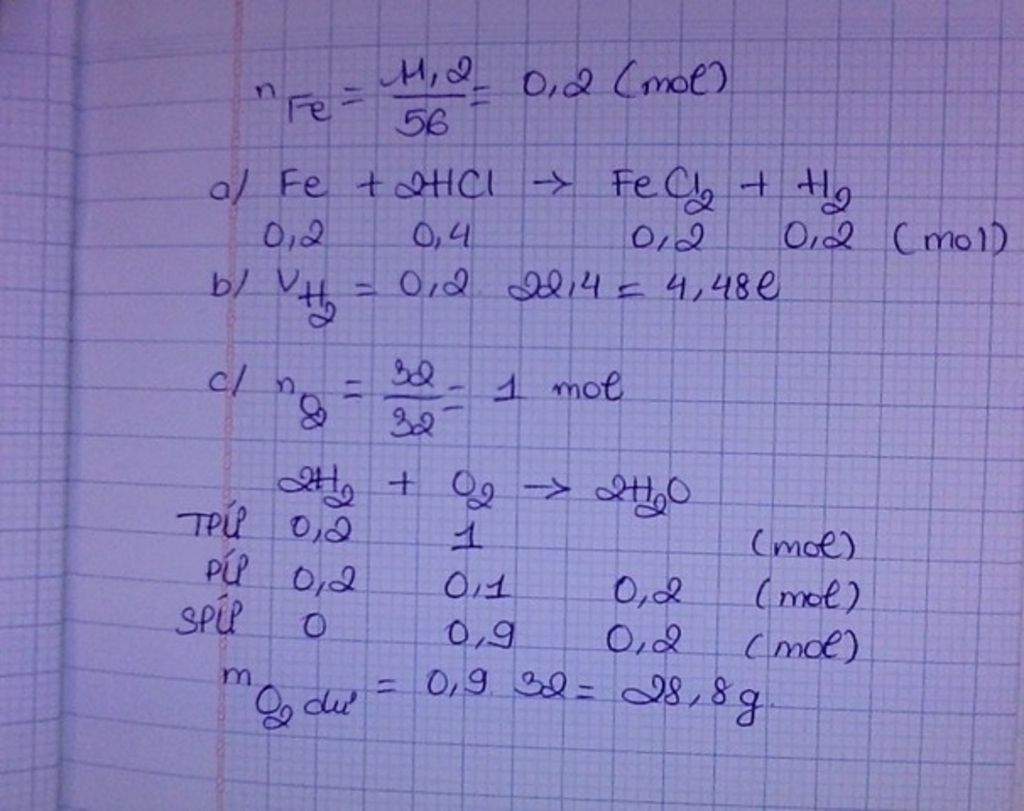 n Fe = 11,2 / 56 = 0,2 (mol)
a/ Fe + 2HCl → FeCl2 + H2
0,2 0,4 0,2 0,2 (mol)
b/ VH2 = 0,2 22,4 = 4,48l
c/ nO2 = 32 / 32 = 1 mol
2H2 + O2 → 2H2O
TPƯ 0,2 1 (mol)
PƯ 0,2 0,1 0,2 (mol)
SPƯ 0 0,9 0,2 (mol)
mO2 dư = 0,9 32 = 28,8g.